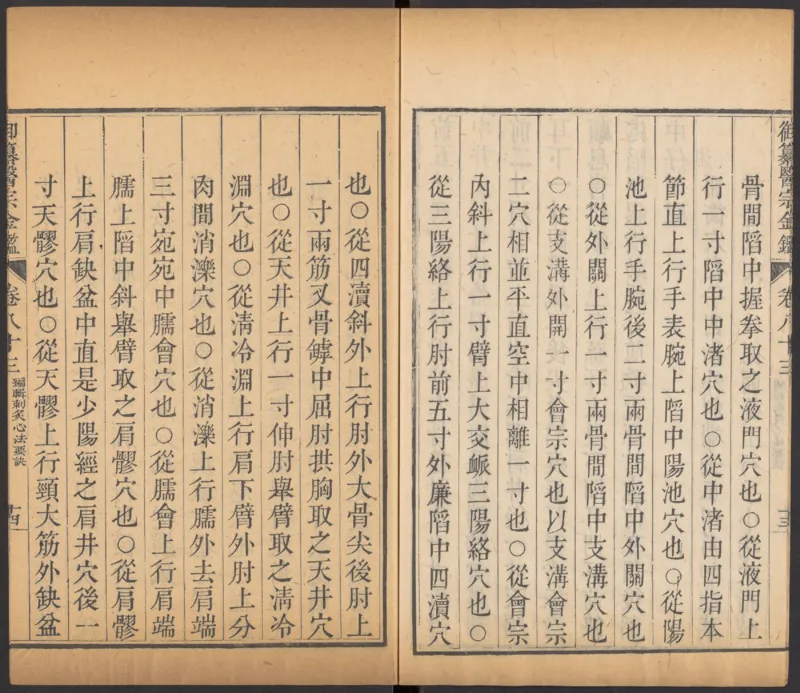 御纂醫宗金鑑 卷八十三 十三
骨間陷中握拳取之液門穴也○從液門上
行一寸陷中中渚穴也○從中渚由四指本
節直上行手表腕上陷中陽池穴也○從陽
池上行手腕後二寸兩骨間陷中外關穴也
○從外關上行一寸兩骨間陷中支溝穴也
○從支溝外開一寸會宗穴也以支溝會宗
二穴相並平直空中相離一寸也○從會宗
內斜上行一寸臂上大交脈三陽絡穴也○
從三陽絡上行肘前五寸外廉陷中四瀆穴
也○從四瀆斜外上行肘外大骨尖後肘上
一寸兩筋叉骨罅中屈肘拱胸取之天井穴
也○從天井上行一寸伸肘舉臂取之清冷
淵穴也○從清冷淵上行肩下臂外肘上分
肉間消濼穴也○從消濼上行臑外去肩端
三寸宛宛中臑會穴也○從臑會上行肩端
臑上陷中斜舉臂取之肩髎穴也○從肩髎
上行肩缺盆中直是少陽經之肩井穴後一
寸天髎穴也○從天髎上行頸大筋外缺盆
御纂醫宗金鑑 卷八十三 編輯刺灸心法要訣 十四